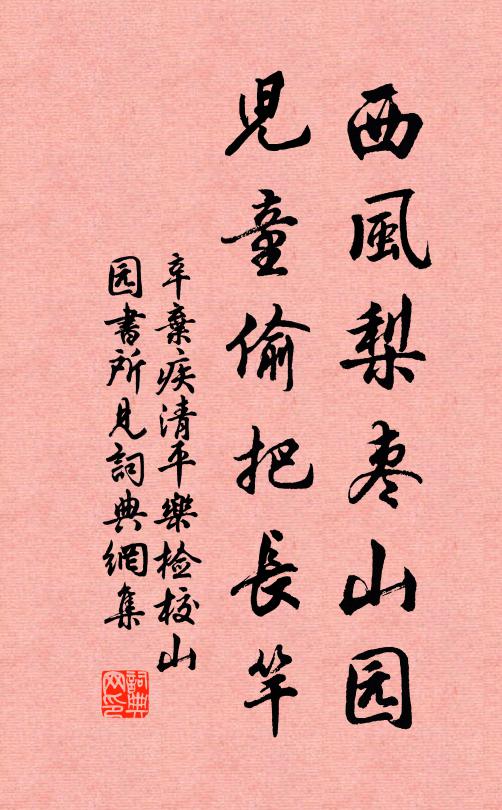 西風梨枣山园
兒童偷把長竿
辛棄疾清平樂检校山
园書所見詞典網集
詞典
网印